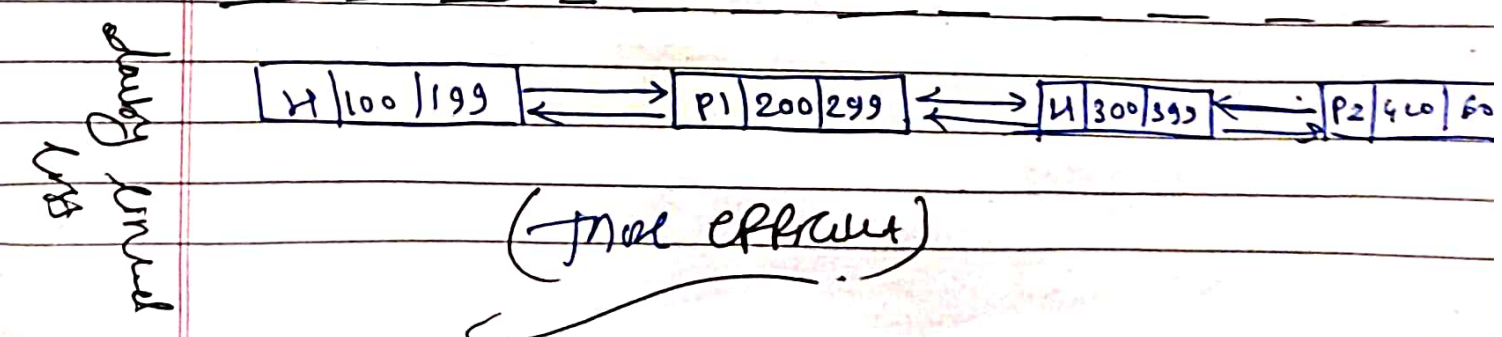 doubly linked
list
H | 100 | 199 P1 | 200 | 299 H | 300 | 399 P2 | 400 | 60
(more efficient)